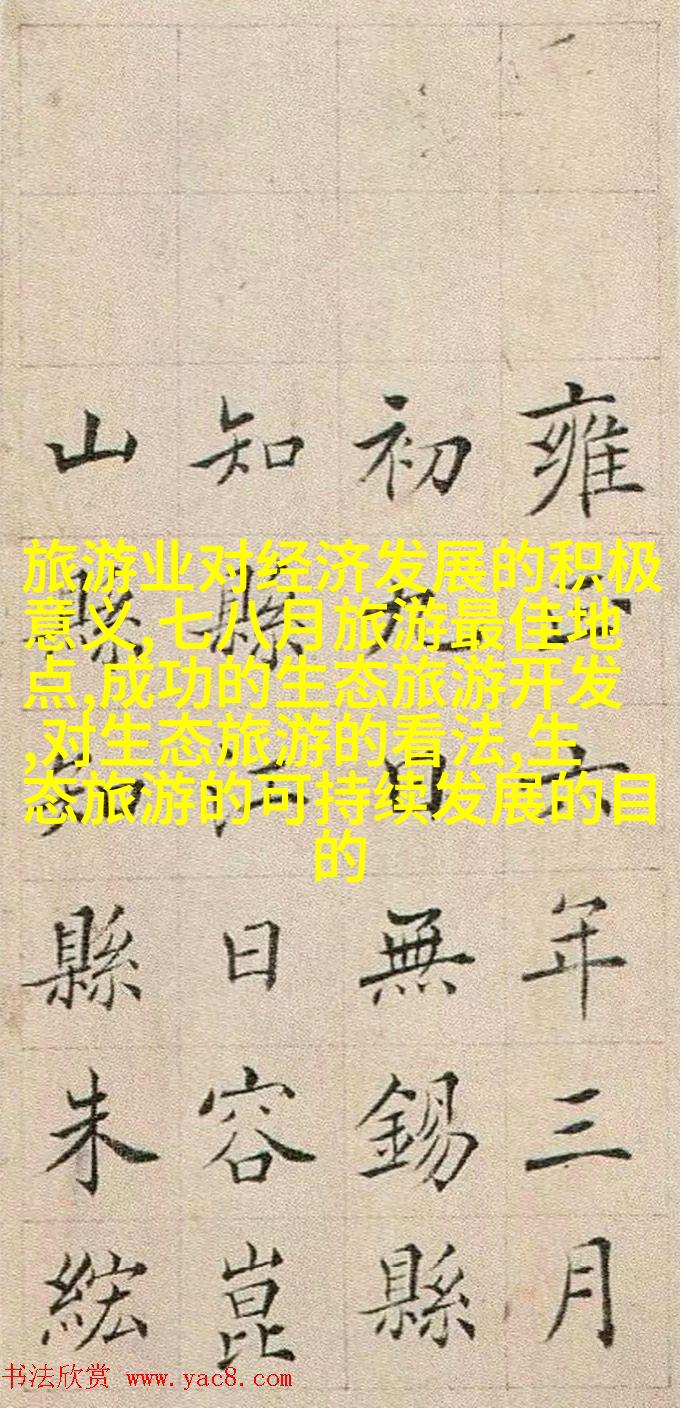 雍正六年三月
初九日無錫縣
知縣江日容崑
山縣知縣朱紘
旅游业对经济发展的积极
意义,七八月旅游最佳地
点,成功的生态旅游开发
,对生态旅游的看法,生
态旅游的可持续发展的目
的
书法欣赏 www.yac8.com